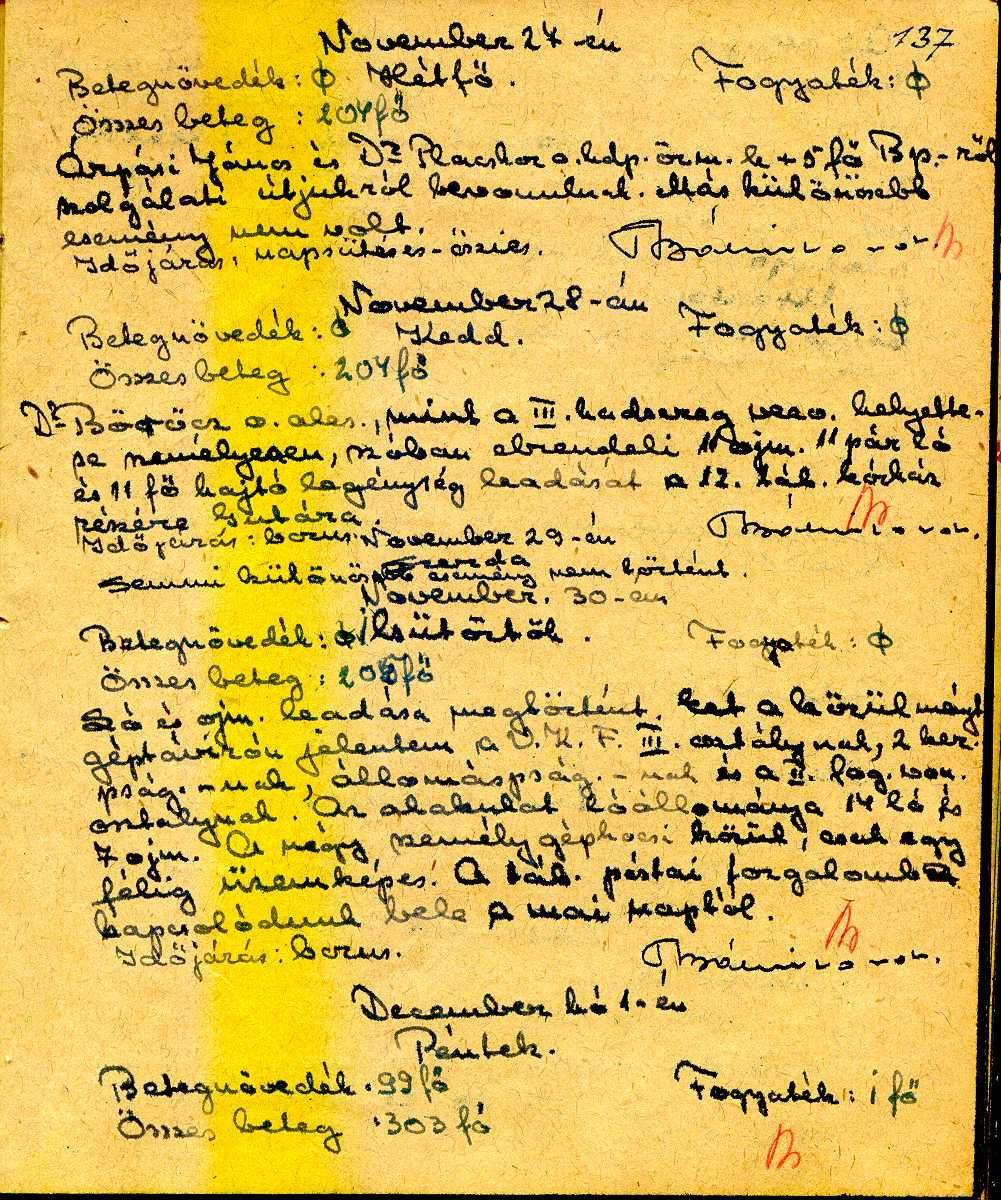 137
November 27-én
Betegnövedék: ϕ Hétfő. Fogyaték: ϕ
Összes beteg : 204 fő
Árpási János és Dr Placskor o. hdp. őrm. k +5 fő Bp.-ről
szolgálati útjukról bevonulnak. Más különösebb
esemény nem volt.
Időjárás: napsütéses-őszies.
November 28-án
Betegnövedék: ϕ Kedd. Fogyaték: ϕ
Összes beteg : 204 fő
Dr Böröcz o. ales., mint a III. hadsereg veo. helyette-
se személyesen, szóban elrendeli 11 ojm. 11 pár ló
és 11 fő hajtó legénység leadását a 12. táb. kórház
részére Gutára.
Időjárás: borus.
November 29-én
Szerda
Semmi különösebb esemény nem történt.
November. 30-án
Betegnövedék: ϕ Csütörtök. Fogyaték: ϕ
Összes beteg : fő
Ló és ojm. leadása megtörtént. Ezt a körülményt
géptávirón jelentem a V. K. F. III. osztálynak, 2 ker.
pság.-nak, állomáspság.-nak és a II. fog. von.
osztálynak. Az alakulat lóállománya 14 ló és
7 ojm. A négy személygépkocsi közül, csak egy
félig üzemképes. A táb. póstai forgalomba
kapcsolódunk bele a mai naptól.
Időjárás: borus.
December hó 1-én
Péntek.
Betegnövedék. 99 fő Fogyaték: 1 fő
Összes beteg :303 fő